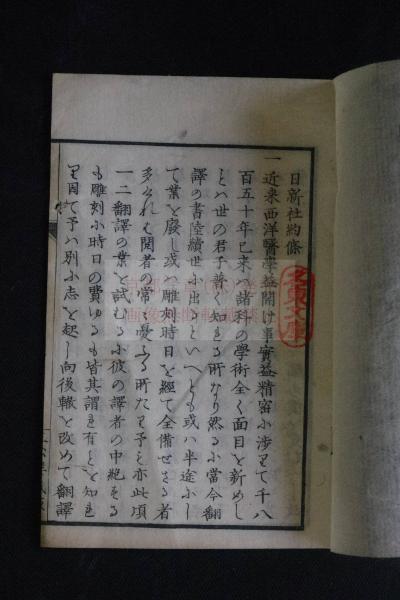 日新社約條
一 近来西洋醫學益開け事實益精密ふ渉りて千八
百五十年已来ハ諸科の學術全く面目を新めし
とハ世の君子普く知る所なり然るふ當今翻
譯の書陸續世ふ出るといへども或ハ半途ふし
て業を廢し或ハ雕刻時日を經て全備せざる者
多くれハ閲者の常ふ憂ふる所たり予も亦此頃
一二翻譯の業を試むるふ彼の譯者の中絶する
も雕刻ふ時日の費ゆるも皆其謂れ有るを知る
り因て予ハ別ふ志を起し向後轍を改めて翻譯
文庫